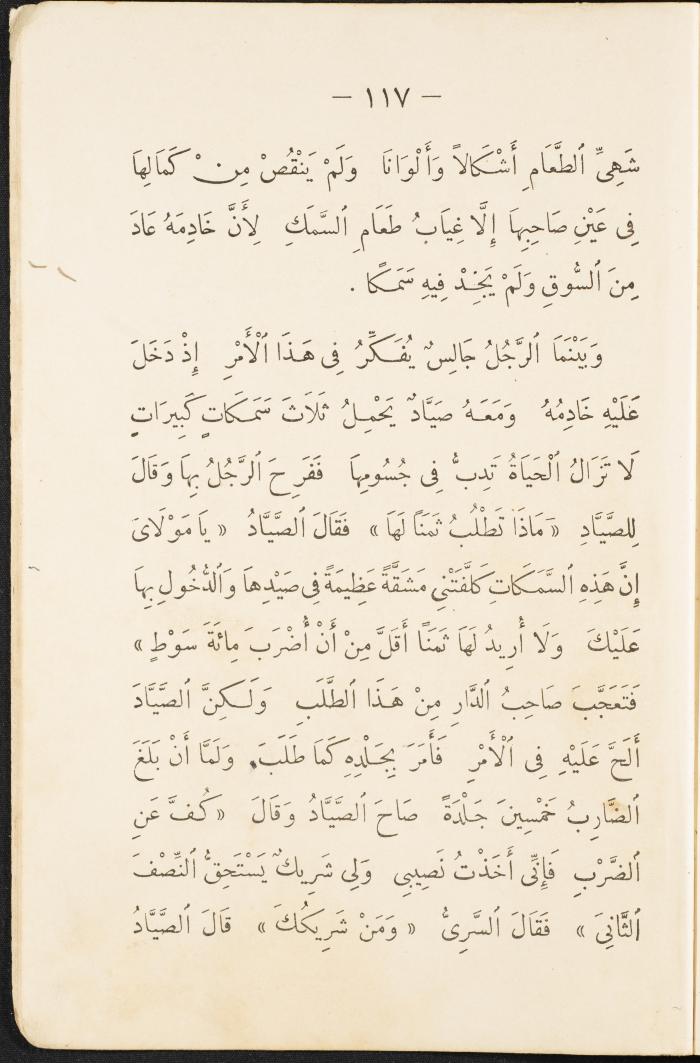 — ١١٧ —
شَهِىِّ ٱلطَّعَامِ أَشْكَالاً وَأَلْوَانَا وَلَمْ يَنْقُصْ مِنْ كَمَالِهَا
فِى عَيْنِ صَاحِبِهَا إِلَّا غِيَابُ طَعَامِ ٱلسَّمَكِ لِأَنَّ خَادِمَهُ عَادَ
مِنَ ٱلسُّوقِ وَلَمْ يَجِدْ فِيهِ سَمَكًا .
وَبَيْنَمَا ٱلرَّجُلُ جَالِسٌ يُفَكِّرُ فِى هَذَا ٱلْأَمْرِ إِذْ دَخَلَ
عَلَيْهِ خَادِمُهُ وَمَعَهُ صَيَّادٌ يَحْمِلُ ثَلَاثَ سَمَكَاتٍ كَبِيرَاتٍ
لَا تَزَالُ ٱلْحَيَاةُ تَدِبُّ فِى جُسُومِهَا فَفَرِحَ ٱلرَّجُلُ بِهَا وَقَالَ
لِلصَّيَّادِ « مَاذَا تَطْلُبُ ثَمَنًا لَهَا » فَقَالَ ٱلصَّيَّادُ « يَا مَوْلَاىَ
إِنَّ هَذِهِ ٱلسَّمَكَاتِ كَلَّفَتْنِى مَشَقَّةً عَظِيمَةً فِى صَيْدِهَا وَٱلدُّخُولِ بِهَا
عَلَيْكَ وَلَا أُرِيدُ لَهَا ثَمَنًا أَقَلَّ مِنْ أَنْ أُضْرَبَ مِائَةَ سَوْطٍ »
فَتَعَجَّبَ صَاحِبُ ٱلدَّارِ مِنْ هَذَا ٱلطَّلَبِ وَلَكِنَّ ٱلصَّيَّادَ
أَلَحَّ عَلَيْهِ فِى ٱلْأَمْرِ فَأَمَرَ بِجَلْدِهِ كَمَا طَلَبَ وَلَمَّا أَنْ بَلَغَ
ٱلضَّارِبُ خَمْسِينَ جَلْدَةً صَاحَ ٱلصَّيَّادُ وَقَالَ « كُفَّ عَنِ
ٱلضَّرْبِ فَإِنِّى أَخَذْتُ نَصِيبِى وَلِى شَرِيكٌ يَسْتَحِقُّ ٱلنِّصْفَ
ٱلثَّانِىَ » فَقَالَ ٱلسَّرِىُّ « وَمَنْ شَرِيكُكَ » قَالَ ٱلصَّيَّادُ